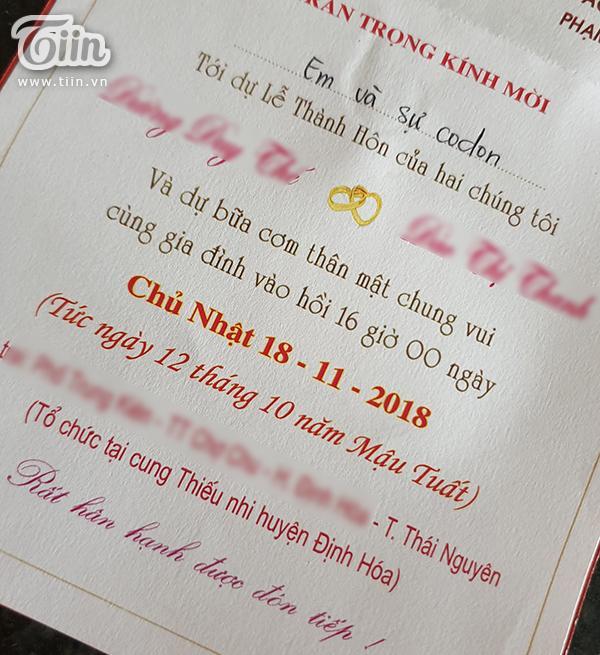 Tiin
www.tiin.vn
TRÂN TRỌNG KÍNH MỜI
PHẠM
Em và sự codon
Tới dự Lễ Thành Hôn của hai chúng tôi
Và dự bữa cơm thân mật chung vui
cùng gia đình vào hồi 16 giờ 00 ngày
Chủ Nhật 18 - 11 - 2018
(Tức ngày 12 tháng 10 năm Mậu Tuất)
- T. Thái Nguyên
(Tổ chức tại cung Thiếu nhi huyện Định Hóa)
Rất hân hạnh được đón tiếp !